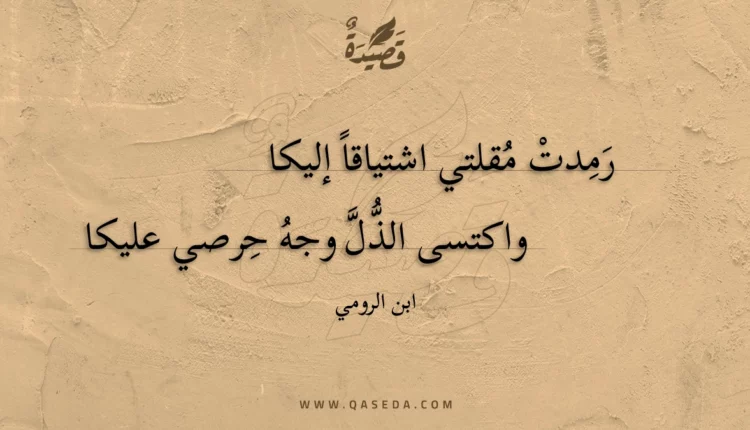 قَصِيْدَةٌ
رَمِدتْ مُقلتي اشتياقاً إليكا
واكتسى الذُّلَّ وجهُ حِرصي عليكا
ابن الرومي
WWW.QASEDA.COM